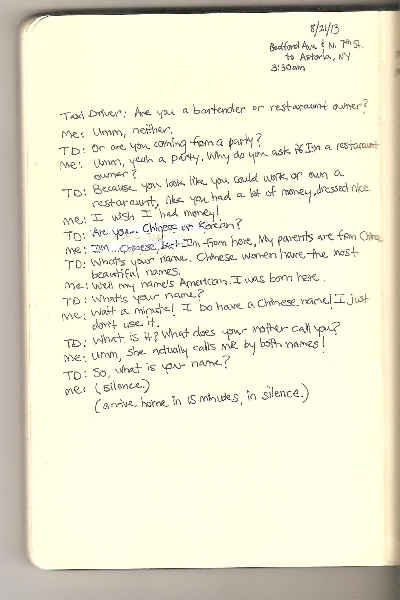 8/21/13
Bedford Ave & N. 7th St.
to Astoria, NY
3:30am
Taxi Driver: Are you a bartender or restaraunt owner?
Me: Umm, neither.
TD: Or are you coming from a party?
Me: Umm, yeah a party. Why do you ask if I'm a restaraunt
owner?
TD: Because you look like you could work or own a
restaraunt, like you had a lot of money, dressed nice.
Me: I wish I had money!
TD: Are you... Chinese or Korean?
Me: I'm... Chinese, but I'm from here, My parents are from China.
TD: What's your name. Chinese women have the most
beautiful names.
Me: Well my name's American. I was born here.
TD: What's your name?
Me: Wait a minute! I Do have a Chinese name! I just
don't use it.
TD: What is it? What does your mother call you?
Me: Umm, she actually calls me by both names!
TD: So, what is your name?
Me: (silence.)
(arrive home in 15 minutes, in silence.)